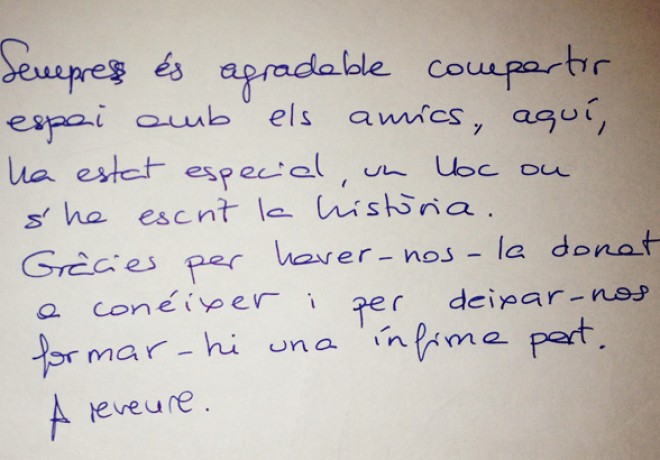 Sempres és agradable compartir
espai amb els amics, aquí,
ha estat especial, un lloc on
s'ha escrit la història.
Gràcies per haver-nos-la donat
a conéixer i per deixar-nos
formar-hi una ínfima part.
A reveure.